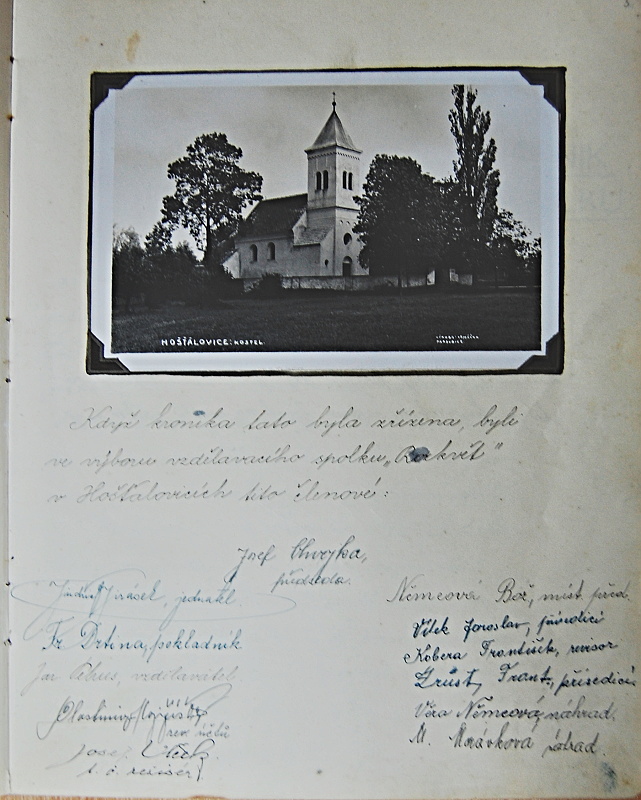 HOŠŤÁLOVICE: KOSTEL.
Když kronika tato byla zřízena, byli
ve výboru vzdělavacího spolku „Rozkvět"
v Hošťalovicích tito členové:
Josef Chvojka,
předseda.
Jirásek, jednatel
Fr. Drtina, pokladník
vzdělavatel
rev. účtů
Josef
t. č. revisor
Němcová Bož., míst. před.
Vítek Jaroslav, přísedící
Kobera František, revisor
Zrůst Frant., přísedící
Věra Němcová, náhrad.
M. Morávkova náhrad.